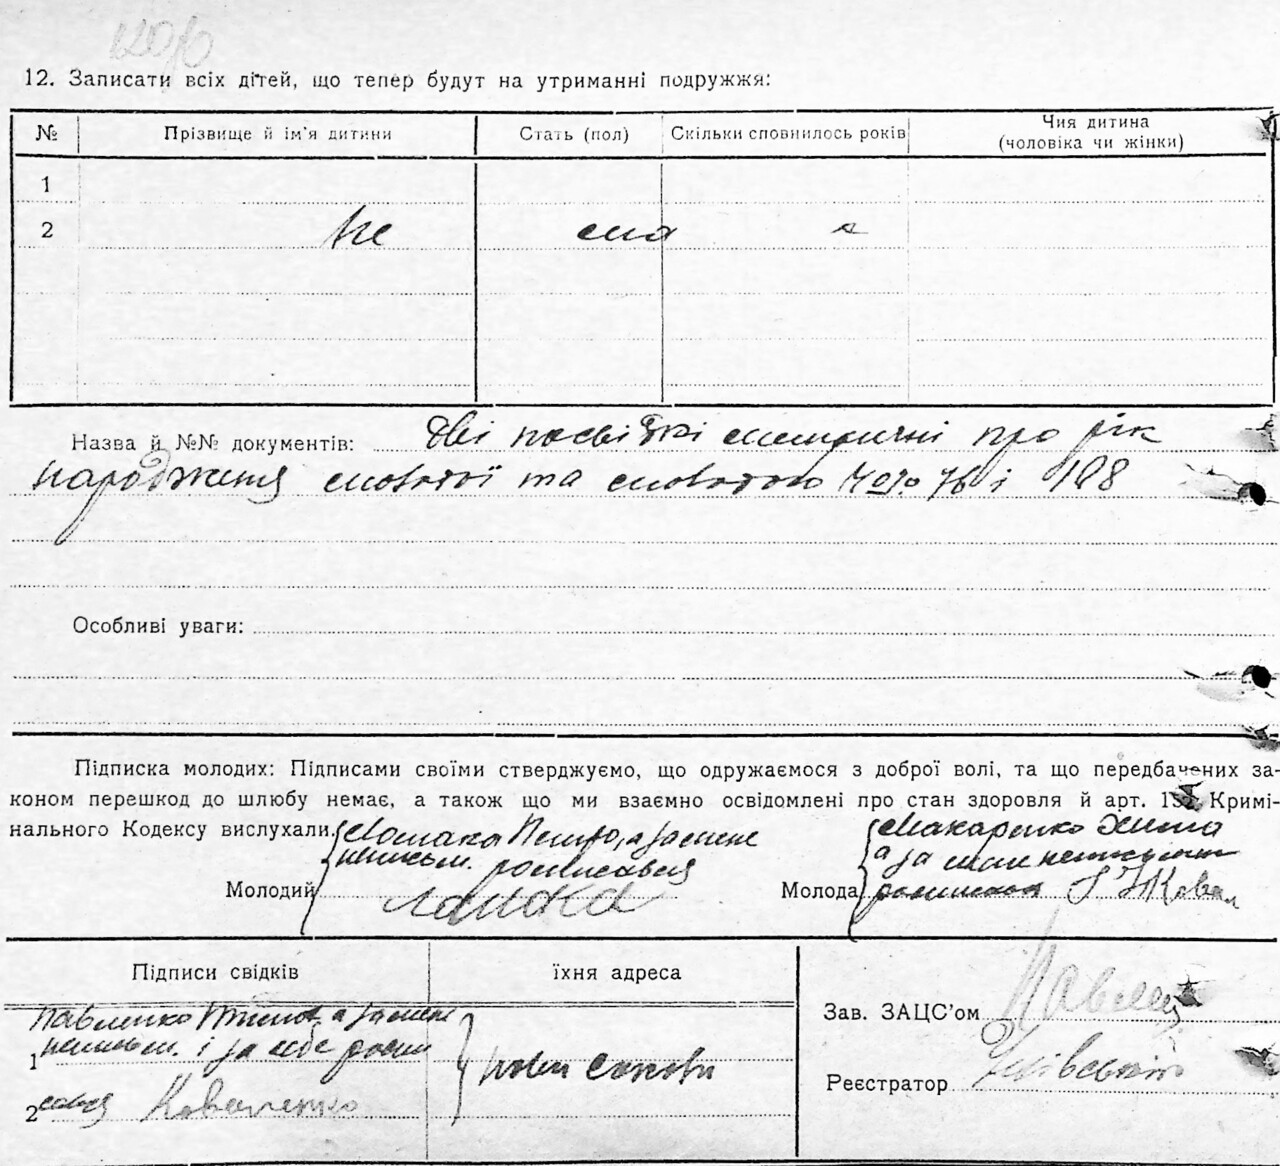 12. Записати всіх дітей, що тепер будут на утриманні подружжя:
№ Прізвище й ім'я дитини Стать (пол) Скільки сповнилось років Чия дитина (чоловіка чи жінки)
1
2 Не ма
Назва й №№ документів: Дві посвідкі метричні про рік
народження молодої та молодого 76 і 198
Особливі уваги:
Підписка молодих: Підписами своїми стверджуємо, що одружаємося з доброї волі, та що передбачених за-
коном перешкод до шлюбу немає, а також що ми взаємно освідомлені про стан здоровля й арт. 155 Кримі-
нального Кодексу вислухали.
Петро, а за мене
неписьм. росписався
Молодий
Макаренко
а за мене неписьмен
Молода росписався Ковал
Підписи свідків їхня адреса
Павленко а за мене
1 неписьм. і за себе роспи
2 сався Коваленко
Зав. ЗАЦС'ом
Реєстратор